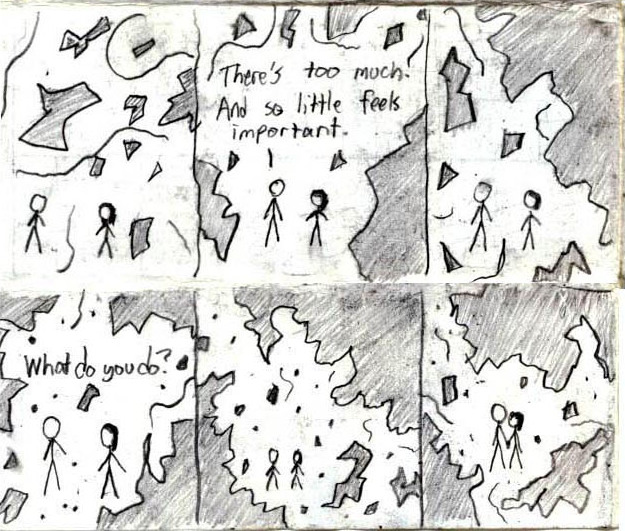 There's too much.
And so little feels
important.
What do you do?